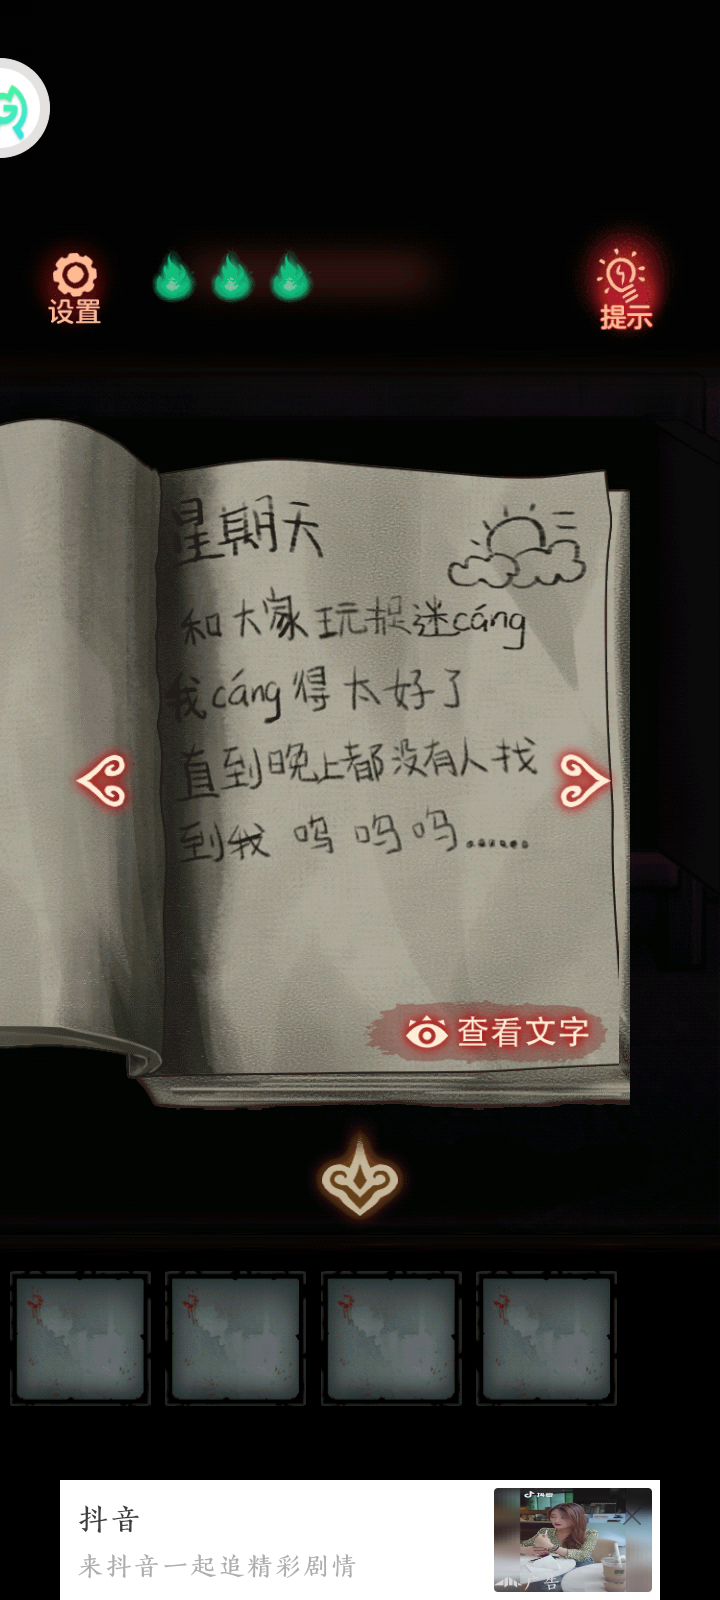 设置
提示
星期天
和大家玩捉迷cáng
我cáng得太好了
直到晚上都没有人找
到我 呜 呜 呜......
查看文字
抖音
来抖音一起追精彩剧情